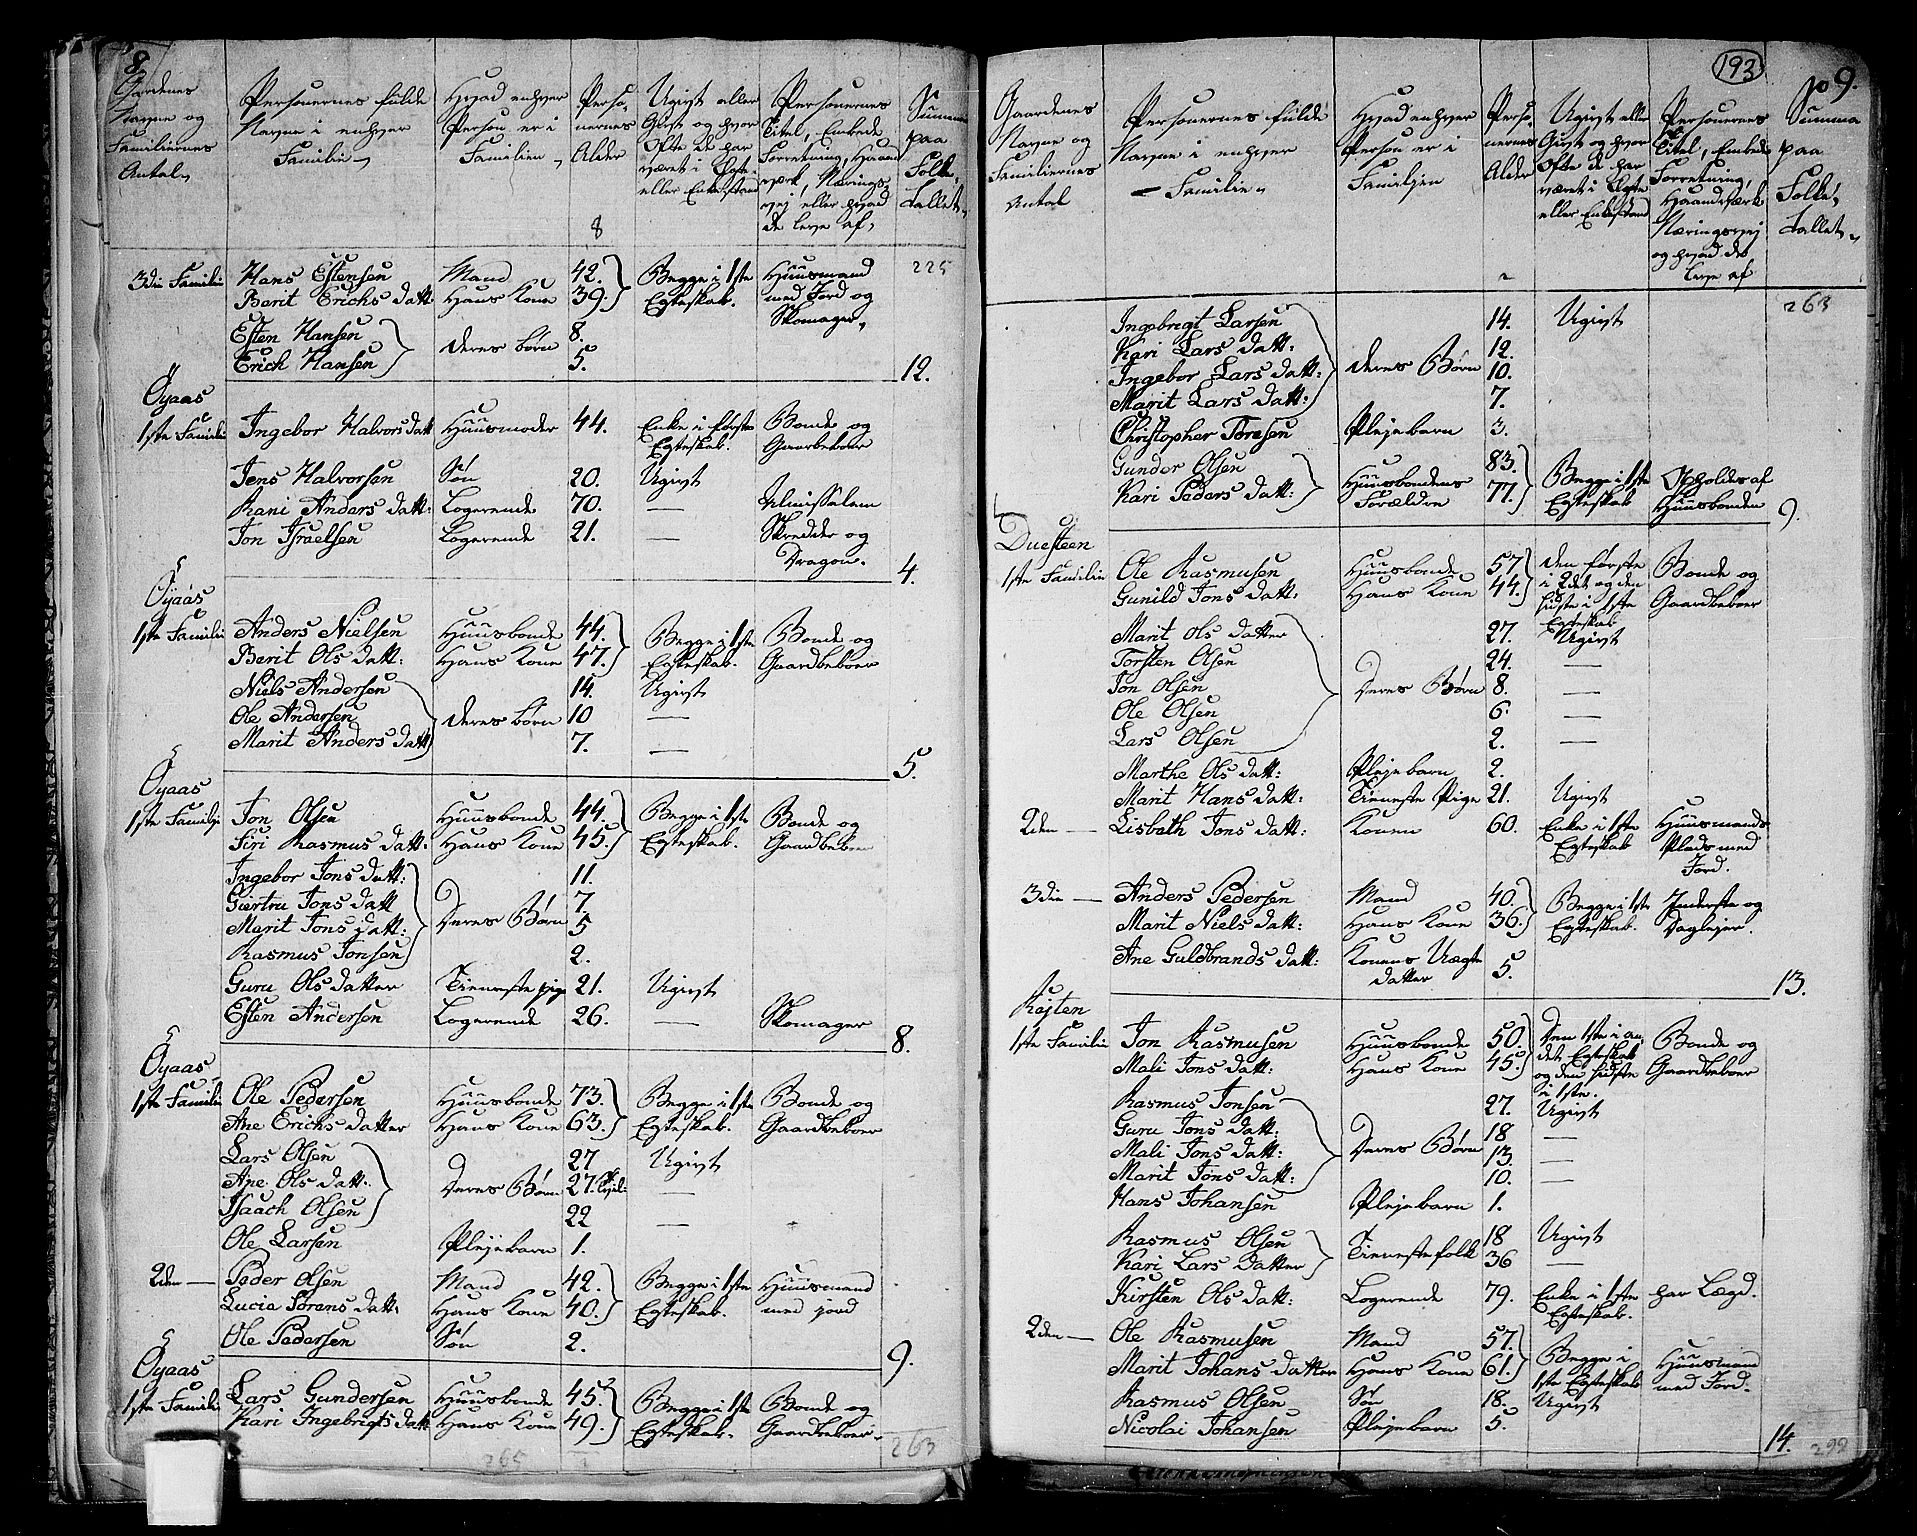 8
Gardenes
Navne og
Familiernes
Antal
Personernes fulde
Navne i enhver
Familie
Hvad enhver
Person er i
Familien
Perso,
nernes
Alder
8
Ugivt eller
Givt og hvor
Ofte de har
været i Egte-
eller Enkestand
Personernes
Titel, Embede
Forretning, Haand
værk, Nærings,
vej eller hvad
de leve af,
Summa
paa
Folke,
Tallet,
3die Familie Hans Estensen Mand 42. Begge i 1ste Huusmand 225
Berit Erichs Datt: Hans Kone 39. Egteskab. med Jord og
Skomager,
Esten Hansen deres børn 8.
Erich Hansen 5. 12.
Øyaas
1ste Familie Ingebor Halvors Datt Huusmoder 44. Enke i første Bonde og
Egteskab. Gaardbeboer
Jens Halvorsen Søn 20. Ugivt
Rani Anders Datt: Logerende 70. — Almissalem
Jon Israelsen Logerende 21. — Skredder og
Dragon. 4.
Øyaas
1ste Familie Anders Nielsen Huusbonde 44. Begge i 1ste Bonde og
Berit Ols Datt: Hans Kone 47. Egteskab. Gaardbeboer
Niels Andersen 14. Ugivt
Ole Andersen deres børn 10 —
Marit Anders Datt 7. — 5.
Øyaas
1ste Familie Jon Olsen Huusbonde 44. Begge i 1ste Bonde og
Siri Rasmus Datt: Hans Kone 45. Egteskab. Gaardbeboer
Ingebor Jons Datt: 11.
Giertru Jons Datt 7.
Marit Jons Datt: Deres Børn 5
Rasmus Jonsen 2.
Guru Ols Datter Tieneste pige 21. Ugivt
Esten Andersen Logerende 26. — Skomager 8.
Øyaas
1ste Familie Ole Pedersen Huusbonde 73. Begge i 1ste Bonde og
Ane Erichs Datter Hans Kone 63. Egteskab. Gaardbeboer
Lars Olsen 27 Ugivt
Ane Ols Datt: Deres Børn 27. —
Isaach Olsen 22 —
Ole Larsen Plejebarn 1.
2den — Peder Olsen Mand 42. Begge i 1ste Huusmand
Lucia Sørens Datt: Hans Kone 40. Egteskab. med jord
Ole Pedersen Søn 2. 9.
Øyaas
1ste Familie Lars Gundersen Huusbonde 45. Begge i 1ste Bonde og
Kari Ingebrigts Datt Hans Kone 49. Egteskab. Gaardbeboer
265 263
193
9.
Gaardenes
Navne og
Familiernes
Antal
Personernes fulde
Navne i enhver
Familie
Hvad enhver
Person er i
Familien
Perso,
nernes
Alder
Ugivt eller
Givt og hvor
Ofte de har
været i Egte
eller Enkestand
Personernes
Titel, Embede
Forretning,
Haandværk
Næringsvej
og hvad de
leve af
Summa
paa
Folke,
Tallet,
263
Ingebrigt Larsen 14. Ugivt
Kari Lars Datt: 12.
Ingebor Lars Datt: deres Børn 10.
Marit Lars Datt: 7.
Christopher Toresen Plejebarn 3.
Gunder Olsen Huusbondens 83. Begge i 1ste Opholdes af
Kari Peders Datt: Forældre 77. Egteskab Huusbonden 9.
Duesteen
1ste Familie Ole Rasmusen Huusbonde 57 den første Bonde og
Gunild Jons Datt: Hans Kone 44. i 2det og den Gaardbeboer
sidste i 1ste
Egteskab
Marit Ols Datter 27. Ugivt
Torsten Olsen 24. —
Jon Olsen Deres Børn 8. —
Ole Olsen 6. —
Lars Olsen 2. —
Marthe Ols Datt: Plejebarn 2.
Marit Hans Datt: Tieneste Pige 21. Ugivt
2den — Lisbath Jons Datt: Konen 60. Enke i 1ste Huusmands
Egteskab Plads med
Jord.
3die — Anders Pedersen Mand 40. Begge i 1ste Inderste og
Marit Niels Datt: Hans Kone 36. Egteskab. Daglejer.
Ane Guldbrands Datt: Konens Uægte
datter 5. 13.
Rejten
1ste Familie Jon Rasmusen Huusbonde 50. Den 1ste i an, Bonde og
Mali Jons Datt: Hans Kone 45. det Egteskab Gaardbeboer
og den sidste
i 1ste.
Rasmus Jonsen 27. Ugivt
Guru Jons Datt: 18 —
Mali Jons Datt: Deres Børn 13. —
Marit Jons Datt: 10. —
Hans Johansen Plejebarn 1.
Rasmus Olsen 18 Ugivt
Kari Lars Datter Tienestefolk 36 —
Kirsten Ols Datt: Logerende 79. Enke i 1ste har Lægd.
Egteskab.
2den — Ole Rasmusen Mand 57. Begge i Huusmand
Marit Johans Datter Hans Kone 61. 1ste Egteskab med Jord.
Rasmus Olsen Søn 18. Ugivt
Nicolai Johansen Plejebarn 5. 14. 299